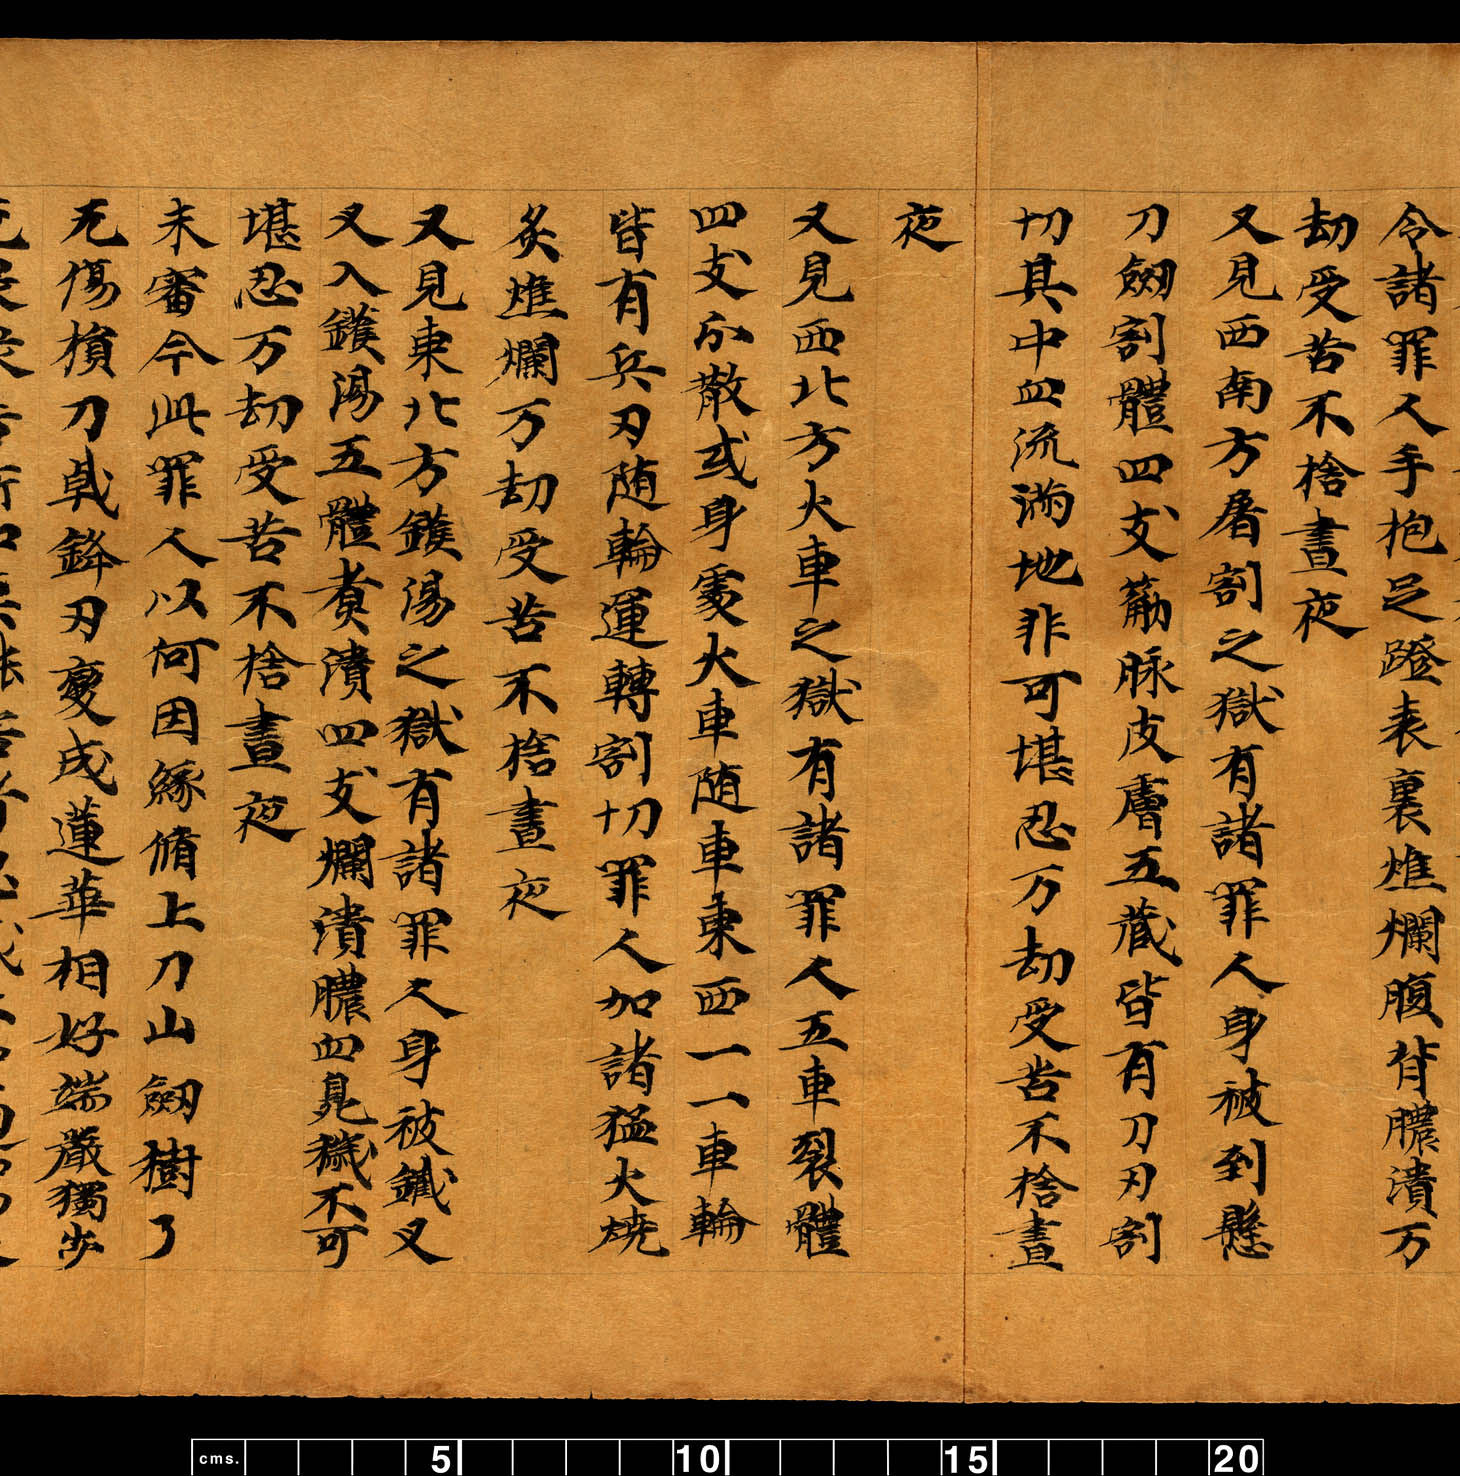 令諸罪人手抱足蹬表裏燋爛腹背膿潰万
劫受苦不捨晝夜
又見西南方屠割之獄有諸罪人身被到懸
刀劔割體四支筋脉皮膚五藏皆有刀刃割
切其中血流滿地非可堪忍万劫受苦不捨晝
夜
又見西北方火車之獄有諸罪人五車裂體
四支分散或身處火車随車東西一一車輪
皆有兵刃随輪運轉割切罪人加諸猛火燒
炙燋爛万劫受苦不捨晝夜
又見東北方鑊湯之獄有諸罪人身被鑯叉
叉入鑊湯五體煑潰四支爛潰膿血臰穢不可
堪忍万劫受苦不捨晝夜
未審今此罪人以何因緣脩上刀山劔樹了
无傷損刀戟鋒刃變成蓮華相好端嚴獨步
cms. 5 10 15 20